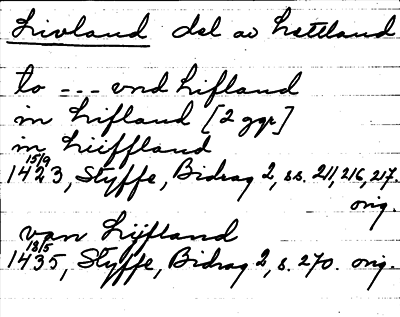 Livland del av Lettland
to --- vnd Lifland
in Lifland [2 ggr]
in Liiffland
15/9
1423, Styffe, Bidrag 2, ss. 211, 216, 217.
orig.
van Lijfland
18/5
1435, Styffe, Bidrag 2, s. 270. orig.